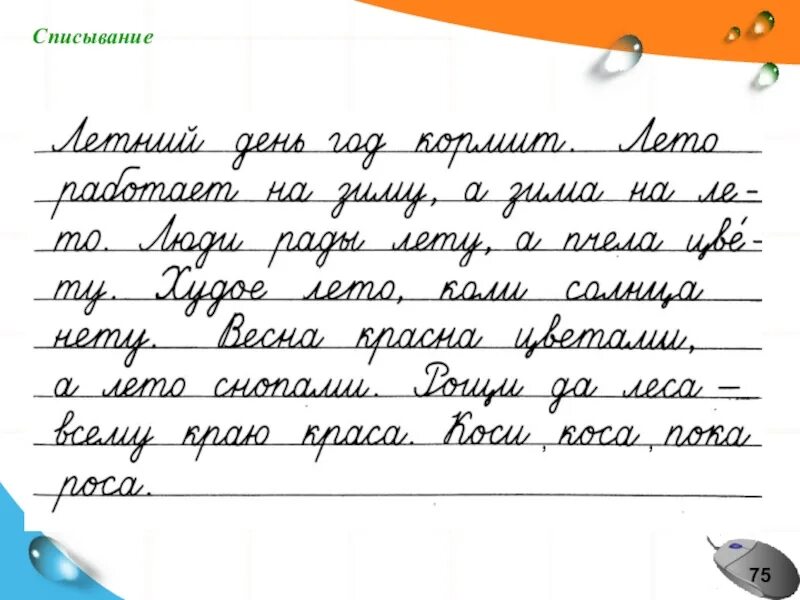 Списывание
Летний день год кормит. Лето
работает на зиму, а зима на ле-
то. Люди рады лету, а пчела цве́-
ту. Худое лето, коли солнца
нету. Весна красна цветами,
а лето снопами. Рощи да леса –
всему краю краса. Коси, коса, пока
роса.
75